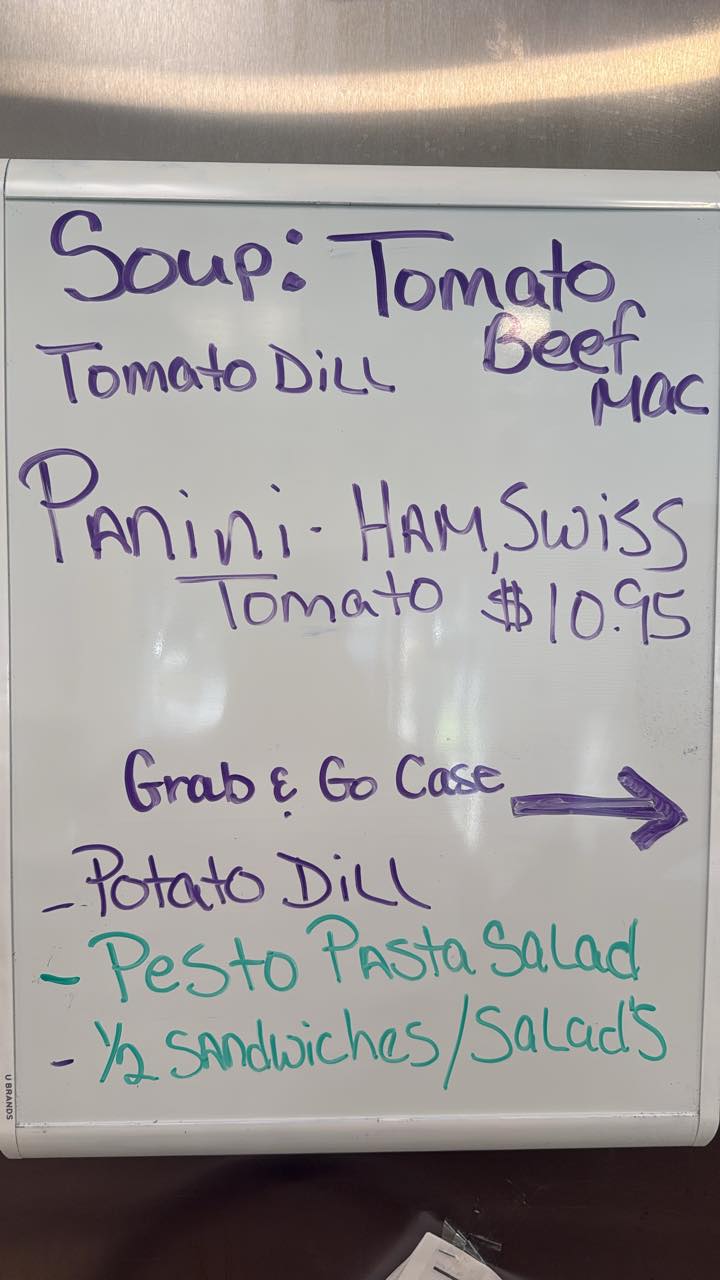 Soup: Tomato
Beef
Mac
Tomato Dill
Panini - Ham, Swiss
Tomato $10.95
Grab & Go Case
- Potato Dill
- Pesto Pasta Salad
- 1/2 Sandwiches/Salad's
U BRANDS